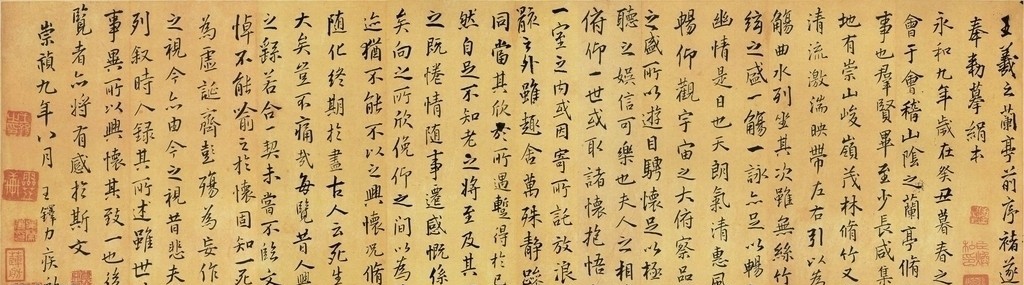 王羲之蘭亭前序褚遂
奉勅摹絹本
永和九年歲在癸丑暮春之
會于會稽山陰之蘭亭脩
事也羣賢畢至少長咸集
地有崇山峻嶺茂林脩竹又
清流激湍映帶左右引以為
觴曲水列坐其次雖無絲竹
絃之盛一觴一詠亦足以暢
幽情是日也天朗氣清惠風
暢仰觀宇宙之大俯察品
之盛所以遊目騁懷足以極
聽之娛信可樂也夫人之相
俯仰一世或取諸懷抱悟
一室之内或因寄所託放浪
骸之外雖趣舍萬殊静躁
同當其欣於所遇蹔得於己
然自足不知老之將至及其
之既惓情随事遷感慨係
矣向之所欣俛仰之間以為
迹猶不能不以之興懷况脩
随化終期於盡古人云死生
大矣豈不痛哉每覽昔人興
之繇若合一契未嘗不臨文
悼不能喻之於懷固知一死
為虛誕齊彭殤為妄作
之視今亦由今之視昔悲夫
列叙時人録其所述雖世
事異所以興懷其致一也後
覽者亦將有感於斯文
崇禎九年八月 王鐸力疾